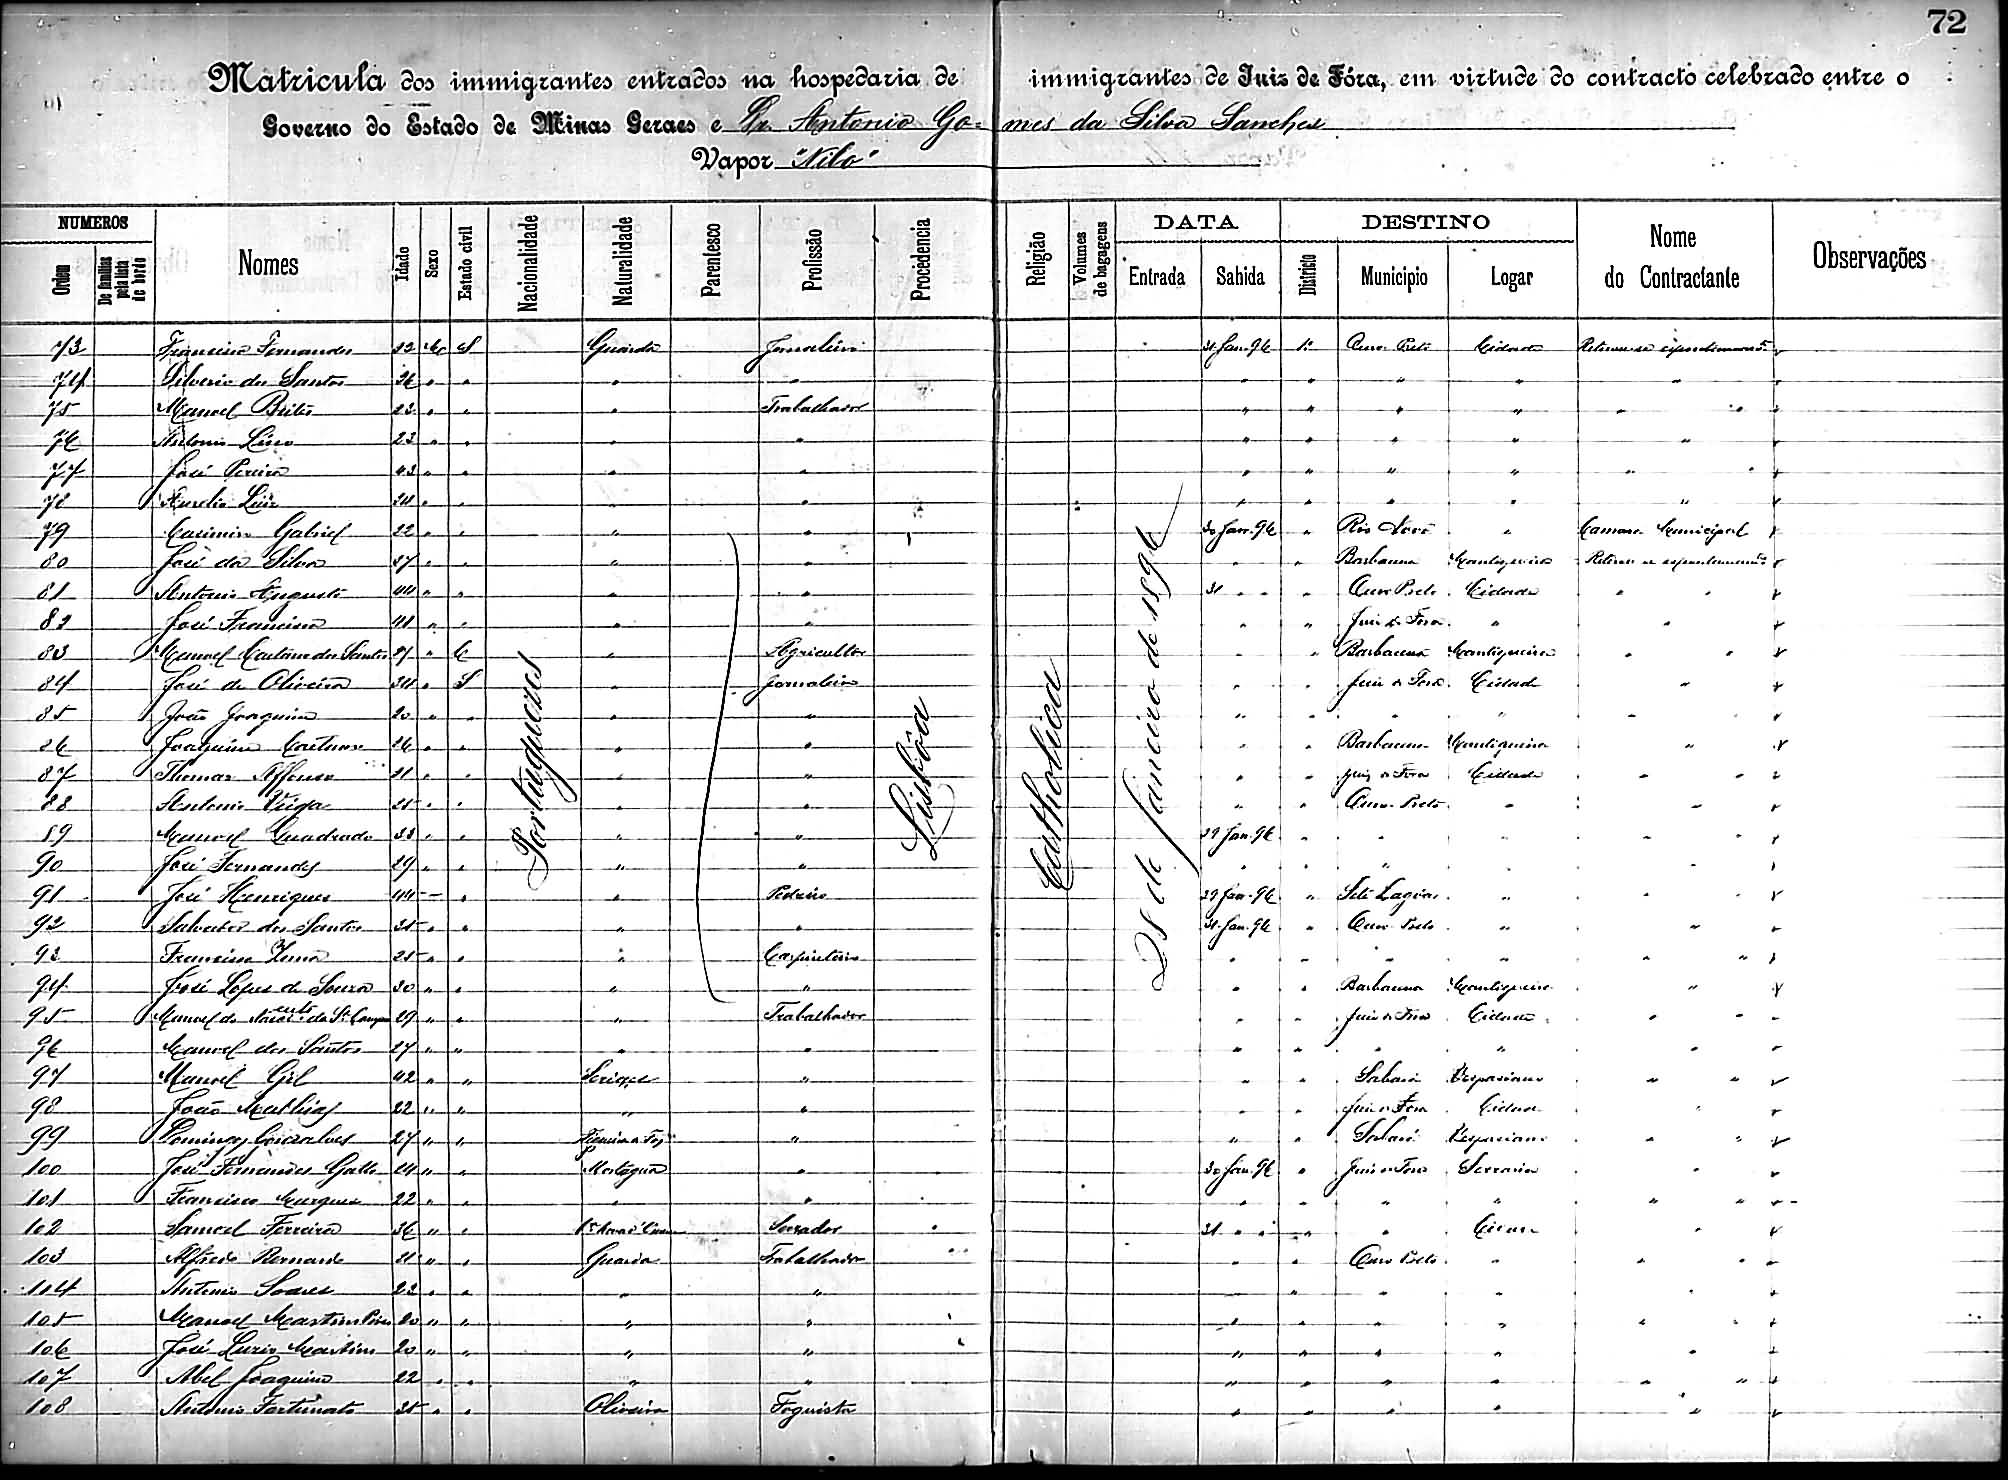 72
Matricula dos immigrantes entrados na hospedaria de immigrantes de Juiz de Fóra, em virtude do contracto celebrado entre o
Governo do Estado de Minas Geraes e Dr. Antonio Gomes da Silva Sanches
Vapor "Nilo"
NUMEROS DATA DESTINO
Ordem De familias pela lista de bordo Nomes Idade Sexo Estado civil Nacionalidade Naturalidade Parentesco Profissão Procedencia Religião Volumes de bagagens Entrada Sahida Districto Municipio Logar Nome do Contractante Observações
Portuguezes
Lisbôa
Catholica
28 de Janeiro de 1896
73 Francisco Fernandes S Guarda Jornaleiro 31 Jan. 96 1º Ouro Preto Cidade Retirou-se espontaneamente
74 Silverio dos Santos 26 " " " " " " " " "
75 Manoel Brito 23 " " " Trabalhador " " " " " "
76 Antonio Lino 23 " " " " " " " " "
77 José Pereira 43 " " " " " " " " " "
78 Aurelio Luiz 24 " " " " " " " " "
79 Casimiro Gabriel 22 " " " " 30 Jan. 96 " Rio Novo " Camara Municipal
80 José da Silva 27 " " " " " " Barbacena Mantiqueira Retirou-se espontaneamente
81 Antonio Augusto 44 " " " " 31 " " " Ouro Preto Cidade " "
82 José Francisco " " " " " " Juiz de Fora " "
83 Manoel Caetano dos Santos 27 " C " Agricultor " " Barbacena Mantiqueira " "
84 José de Oliveira 34 " S " Jornaleiro " " Juiz de Fora Cidade "
85 João Joaquim 20 " " " " " " " " "
86 Joaquim Caetano 26 " " " " " " Barbacena Mantiqueira "
87 Thomaz Affonso 21 " " " " " " Juiz de Fora Cidade " "
88 Antonio Veiga 25 " " " " " " Ouro Preto " "
89 Manoel Quadrado 33 " " " " 29 Jan. 96 " " " " "
90 José Fernandes 29 " " " " " " " " "
91 José Henriques " " Pedreiro 29 Jan. 96 " Sete Lagôas " " "
92 Salvador dos Santos 35 " " " " 31 Jan. 96 " Ouro Preto " "
93 Francisco 25 " " " Carpinteiro " " " " " "
94 José Lopes de Souza 30 " " " " " " Barbacena Mantiqueira "
95 Manoel do 29 " " " Trabalhador " " Juiz de Fora Cidade " "
96 Manoel dos Santos 27 " " " " " " " " "
97 Manoel Gil 42 " " " " " Sabará Vespasiano " "
98 João Mathias 22 " " " " " " Juiz de Fora Cidade "
99 Domingos Gonçalves 27 " " Figueira da Foz " " " Sabará Vespasiano " "
100 José Fernandes Gallo 24 " " Mortagua " 30 Jan. 96 " Juiz de Fora Serraria "
101 Francisco Marques 22 " " " " " " " " " "
102 Samoel Ferreira 36 " " Serrador 31 " " " " Cidade "
103 Alfredo Bernardo 21 " " Guarda Trabalhador " " Ouro Preto " " "
104 Antonio Soares 22 " " " " " " " "
105 Manoel Martins Pires 20 " " " " " " " " " "
106 José Luzio Martins 20 " " " " " " " " "
107 Abel Joaquim 22 " " " " " " " " " "
108 Antonio Fortunato 35 " " Oliveira Foguista " " " " "